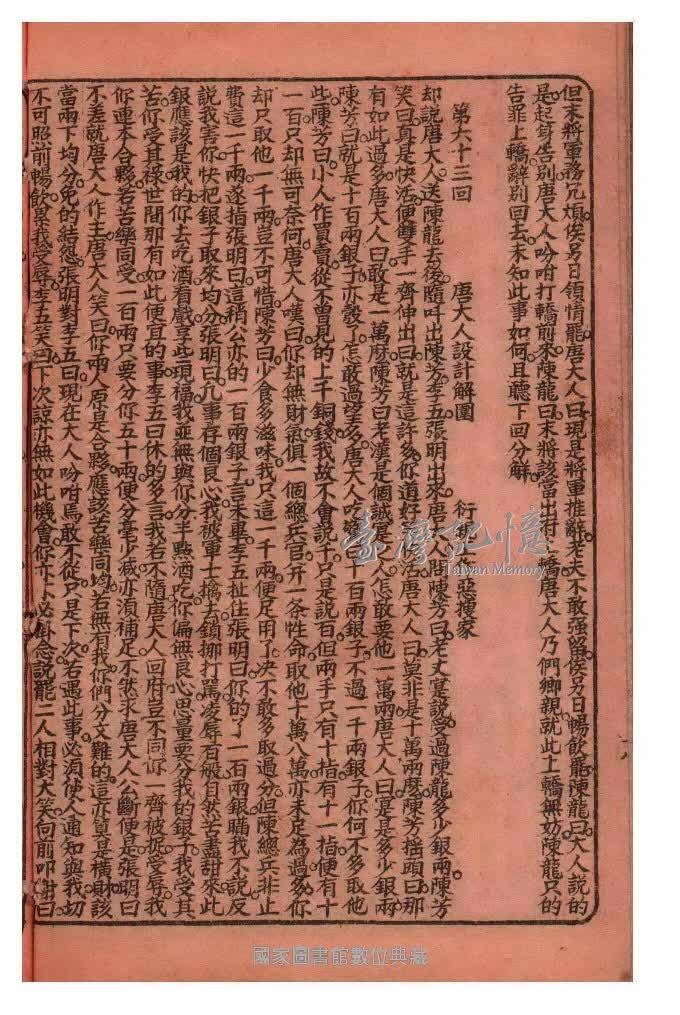 但末將軍務冗煩俟另日領情罷唐大人曰現是將軍推辭老夫不敢强留俟另日暢飲罷陳龍曰大人説的
是起身告别唐大人吩咐打轎前來陳龍曰末將該當出府上轎唐大人乃們卿親就此上轎無妨陳龍只的
告罪上轎辭别回去未知此事如何且聽下回分解
第六十三回 唐大人設計解圍 衍 惡搜家
却説唐大人送陳龍去後隨叫出陳芳李五張明出來唐大人問陳芳曰老丈寔説受過陳龍多少銀兩陳芳
笑曰真是快活便雙手一齊伸出曰就是這許多你道好 活唐大人曰莫非是十萬兩麽陳芳摇頭曰那
有如此過多唐大人曰敢是一萬麽陳芳曰老漢是個誠是 人怎敢要他一萬兩唐大人曰寔是多少銀兩
陳芳曰就是十百兩銀子亦彀了怎敢過望多唐大人吃驚曰十百兩銀子不過一千兩銀子你何不多取他
些陳芳曰小人作賣賣從不曾見的上千銅錢我故不會説千只是説百但兩手只有十指有十一指便有十
一百只却無可奈何唐大人嘆曰你却無財氣俱一個總兵官开一条性命取他十萬八萬亦未足為過多你
却只取他一千兩豈不可惜陳芳曰少食多滋味我只這一千兩便足用了决不敢多取過分但陳總兵非止
費這一千兩遂指張明曰這稍公亦的一百兩銀子言未畢李五扯住張明曰你的了一百兩銀瞞我不説反
説我害你快把銀子取來均分張明曰凢事存個良心我被軍士擒去鎖挪打罵凌辱百般自然苦盡甜來此
銀應該是我的你去吃酒看戲享些現福我並無與你分半點酒吃你偏無良心思量要分我的銀子我受其
苦你受其禄世間那有如此便宜的事李五曰休的多言我若不隨唐大人回府豈不同你一齊被捉受辱我
你連本合夥若苦樂同受一百兩只要分你五十兩便分毫少减亦須補足不然求唐大人公斷便是張明曰
不差就唐大人作主唐大人笑曰你兩人原是合夥應該苦樂同均若無有我你們分文難的這亦算是橫財該
當兩下均分免的結怨張明對李五曰現在大人吩咐焉敢不從只是下次若遇此事必須使人通知與我切
不可照前暢飲累我受辱李五笑曰下次諒亦無如此機會你亦不必掛念説罷二人相對大笑向前叩謝曰
臺灣記憶
Taiwan Memory
國家圖書館數位典藏